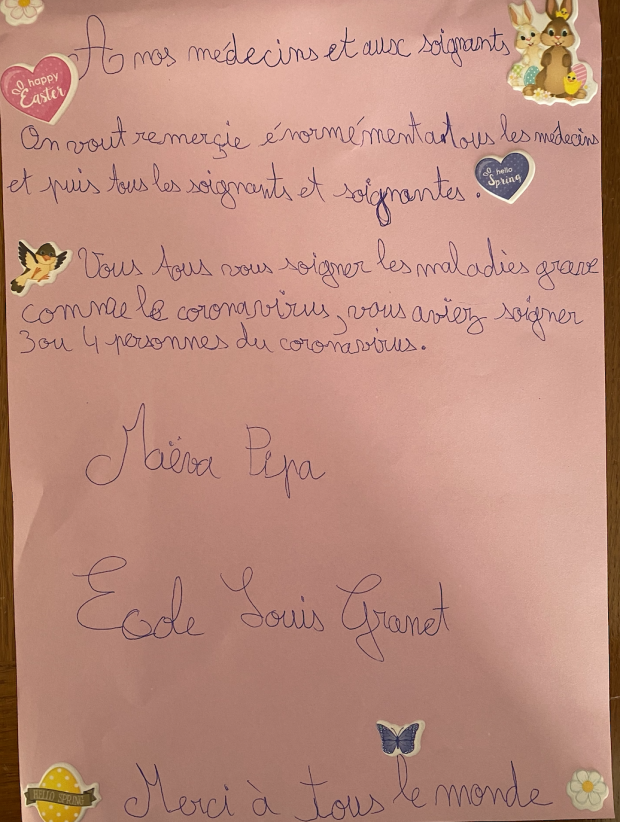 A nos médecins et aux soignants
happy
Easter
On vout remerçie énormément a tous les médecins
et puis tous les soignants et soignantes.
hello
Spring
Vous tous vous soigner les maladies grave
comme le coronavirus, vous aviez soigner
3 ou 4 personnes du coronavirus.
Maëva Pipa
Ecole Louis Granet
HELLO SPRING
Merci à tous le monde